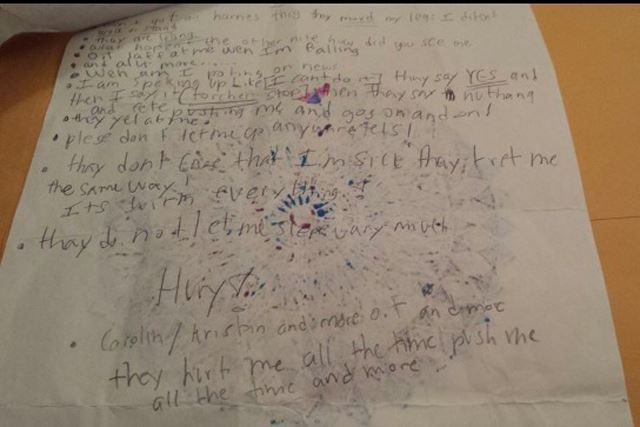 harnes they thry movd my legs I dident
well or stand
• thay are leing
• what happend the other nite how did you see me
• Or laff at me wen I'm Balling
• and alls more.....
• Wen am I poting on news
• I am speking up Like [I cant do it] thay say YES and
then I say [torcher stop] then thay say nuthang
and pushing me and gos on and on!
• thay yel at me.
• plese don't let me go anywere els!
• thay dont Care that I'm sick thay tret me
the same way!
Its with everything!
• thay do not let me sleep vary much
Hury!
• Carolin / Krisbin and more O.T and moe
they hurt me all the time push me
all the time and more